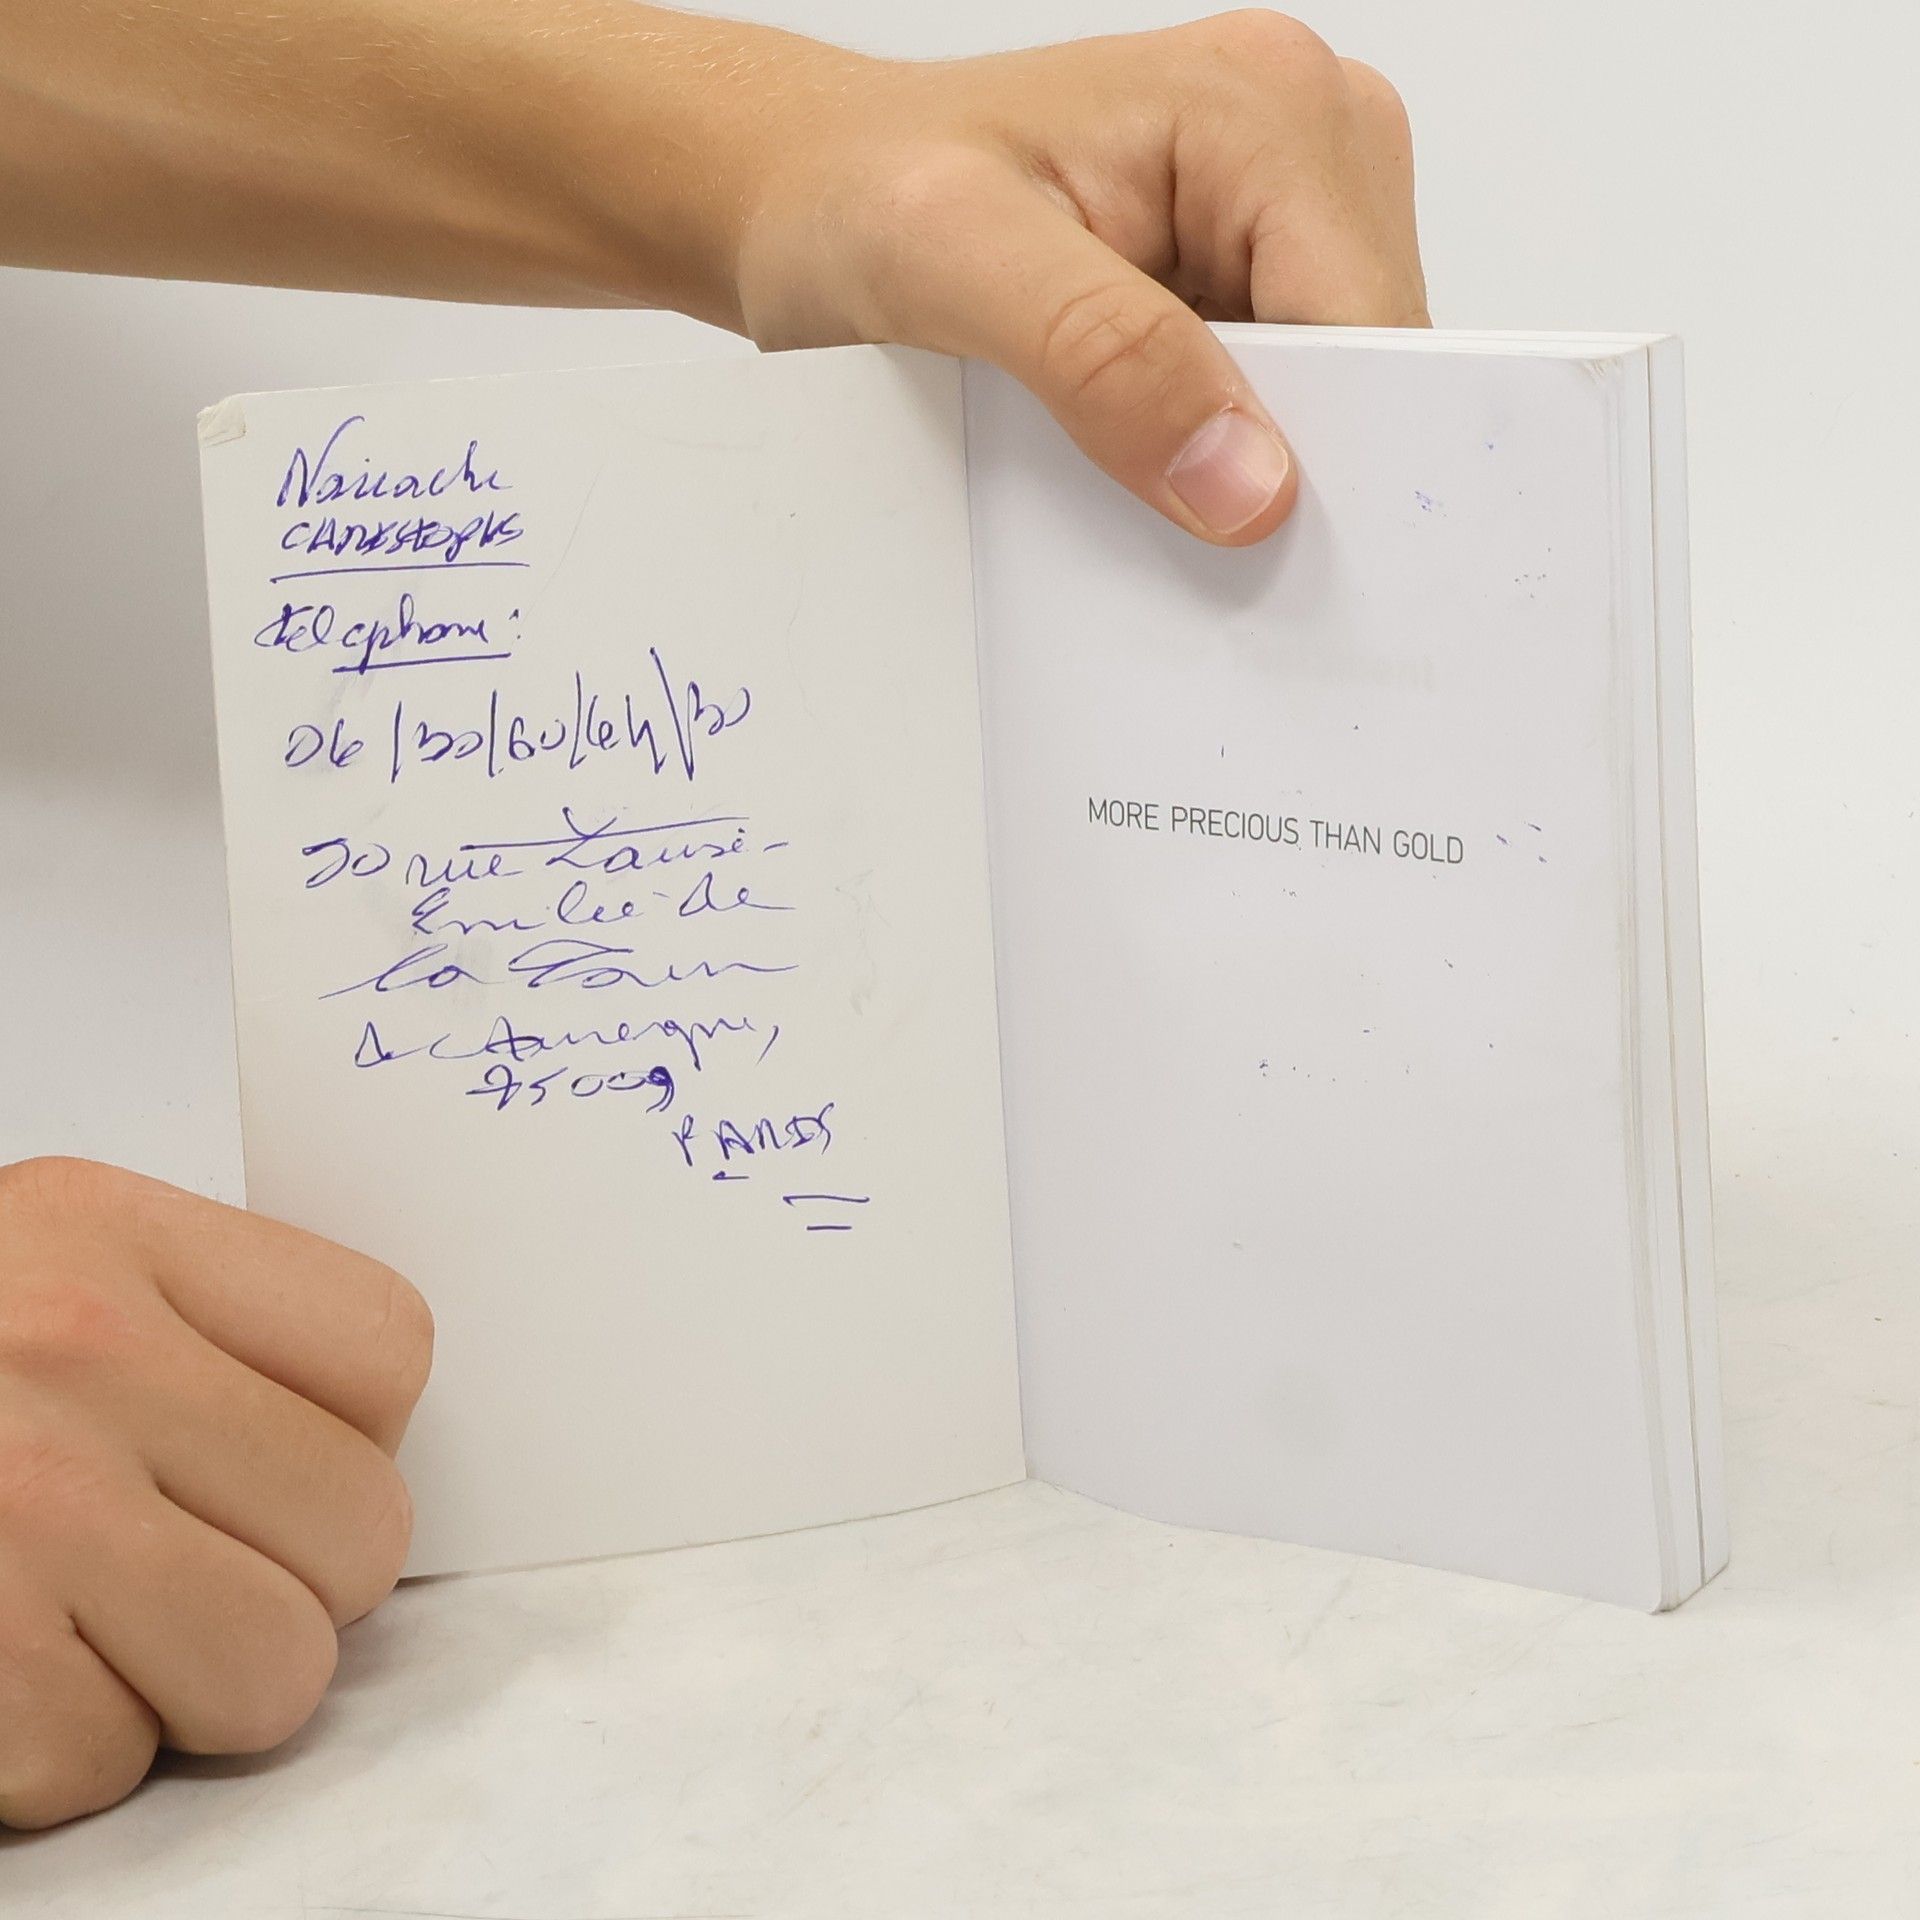 CHRISTOPHE
telephone:
06/30/60/64/30
30 rue Louise-
Emilie de
la Tour
de Auvergne,
75009
PARIS
MORE PRECIOUS THAN GOLD